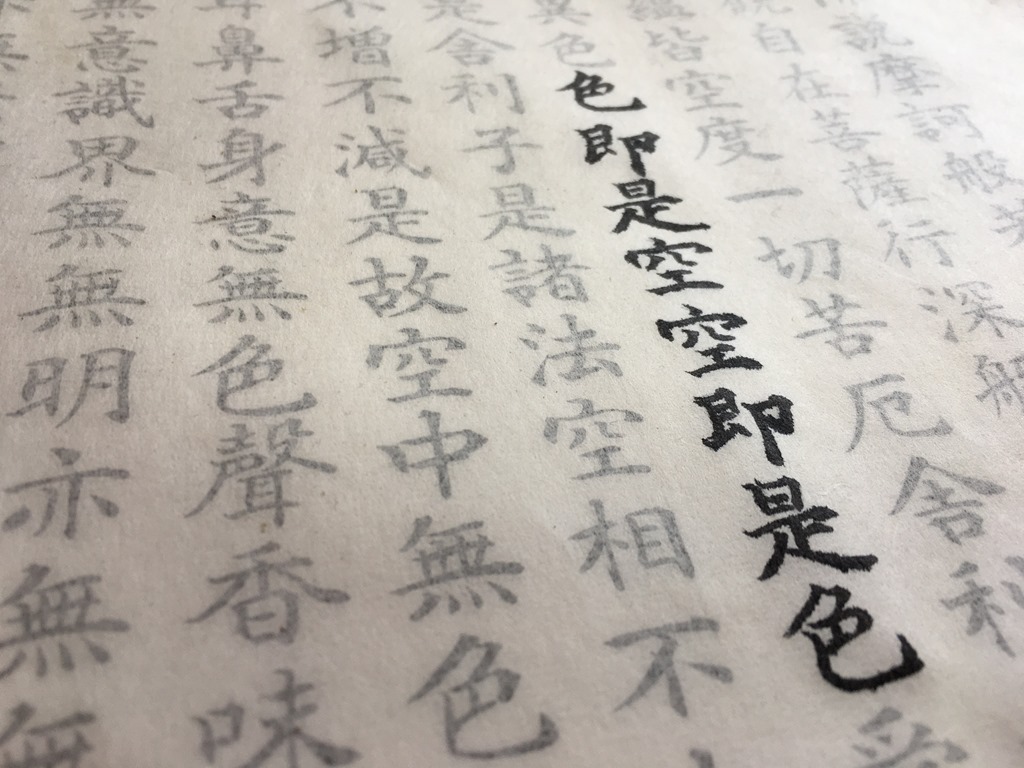 説摩訶般若
自在菩薩行深般
蘊皆空度一切苦厄舍利
異色色即是空空即是色受
是舍利子是諸法空相不
不增不減是故空中無色
耳鼻舌身意無色聲香味
無意識界無無明亦無無